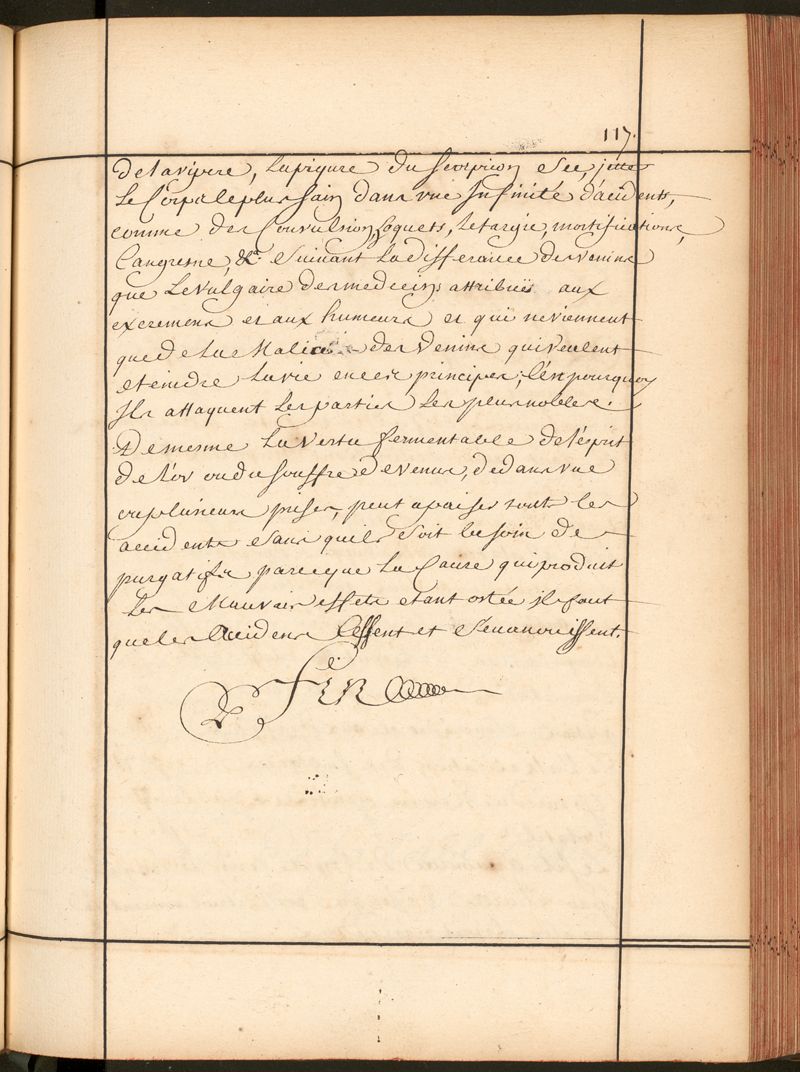 117.
delavipere, lapiqure du scorpion &c, jette
le Corps le plus sain dans vne Infinité d'acidents,
comme des Convulsions, hoquets, letargie, mortifications,
Cangresne, &ca. Suivant la differance des venins
que le vulgaire des medecins attribüe aux
excremens et aux humeurs et qui ne viennent
que de la Malice des Venins qui veulent
eteindre la vie en ces principes, c'est pourquoy
Ils attaquent les parties les plus nobles.
De mesme la vertu fermentable de l'esprit
de l'or ou du souffre de venus, dedans vne
ou plusieurs prises, peut apaiser touts les
accidents sans qu'il soit besoin de
purgatifs parce que la Cause qui produit
les Mauvais effets etant ostée il faut
que les Accidens Cessent et s'evanouissent.
Fin